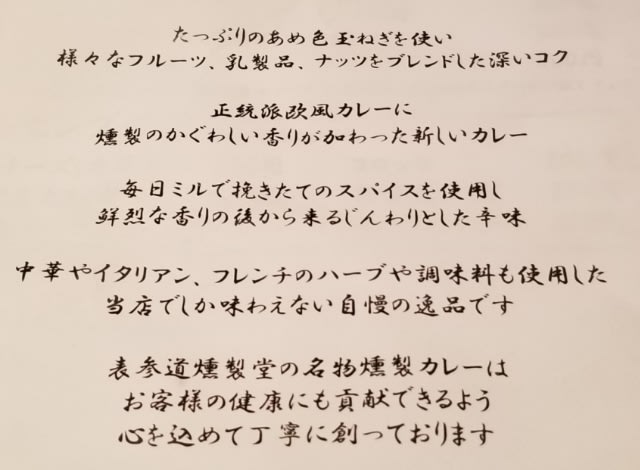 たっぷりのあめ色玉ねぎを使い
様々なフルーツ、乳製品、ナッツをブレンドした深いコク
正統派欧風カレーに
燻製のかぐわしい香りが加わった新しいカレー
毎日ミルで挽きたてのスパイスを使用し
鮮烈な香りの後から来るじんわりとした辛味
中華やイタリアン、フレンチのハーブや調味料も使用した
当店でしか味わえない自慢の逸品です
表参道燻製堂の名物燻製カレーは
お客様の健康にも貢献できるよう
心を込めて丁寧に創っております